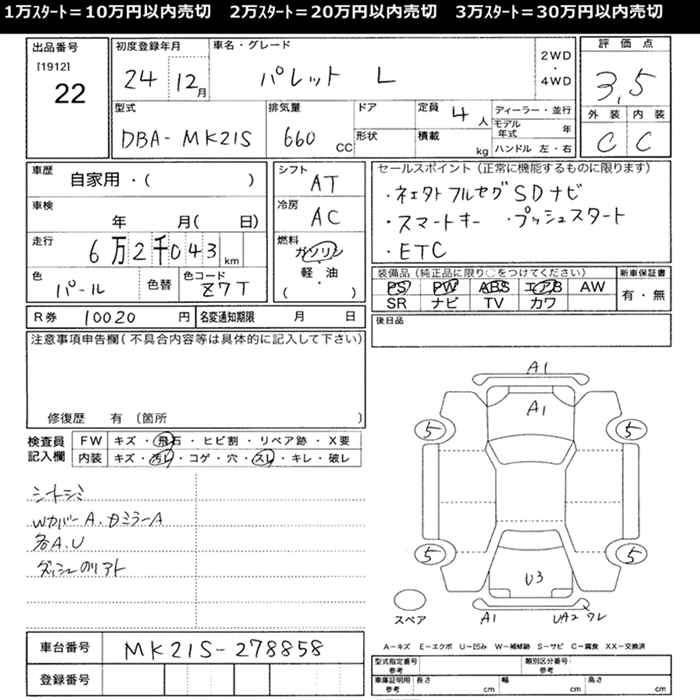 1万ｽﾀｰﾄ＝10万円以内売切　2万ｽﾀｰﾄ＝20万円以内売切　3万ｽﾀｰﾄ＝30万円以内売切
出品番号
[1912]
22
初度登録年月
24 12月
車名・グレード
パレット L
2WD
・
4WD
評価点
3.5
外装 内装
C C
型式
DBA-MK21S
排気量
660 CC
ドア
形状
定員 4人
積載 kg
ディーラー・並行
モデル年式 年
ハンドル 左・右
車歴
自家用・( )
車検
年 月( 日)
走行
6万2千043 km
色
パール
色替
色コード
Z7T
シフト
AT
冷房
AC
燃料
ガソリン
・
軽・油
( )
セールスポイント（正常に機能するものに限ります）
・スマートキー ・プッシュスタート
・ETC
装備品（純正品に限り○をつけてください）
PS PW ABS エアB AW
SR ナビ TV カワ
新車保証書
有・無
R券 10020 円
名変通知期限 月 日
後日品
注意事項申告欄(不具合内容等は具体的に記入して下さい)
修復歴 有（箇所 ）
検査員記入欄
FW キズ・飛石・ヒビ割・リペア跡・X要
内装 キズ・汚レ・コゲ・穴・スレ・キレ・破レ
シートシミ
WカバーA.DミラーA
各A.U
A1
A1
5 5
5 5
U3
スペア
A1 UA2 ワレ
A－キズ E－エクボ U－凹み W－補修跡 S－サビ C－腐食 XX－交換済
車台番号 MK21S-278858
登録番号
型式指定番号 参考
類別区分番号 参考
車庫証明用 参考
長さ cm
幅 cm
高さ cm